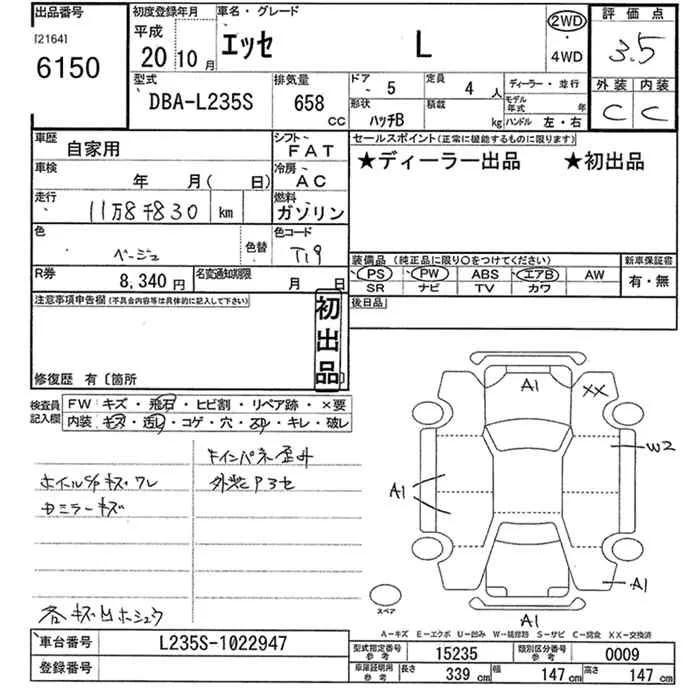 出品番号
[2164]
6150
初度登録年月
平成
20年 10月
車名・グレード
エッセ L
2WD
・
4WD
評価点
3.5
外装 内装
C C
型式
DBA-L235S
排気量
658 cc
ドア 5
定員 4 人
ディーラー・並行
形状 ハッチB
積載 kg
モデル年式 年
ハンドル 左・右
車歴 自家用
シフト FAT
車検 年 月( 日)
冷房 AC
走行 11万8千830 km
燃料 ガソリン
色 ベージュ
色替
色コード T19
R券 8,340 円
名変通知期限 月 日
セールスポイント(正常に機能するものに限ります)
★ディーラー出品 ★初出品
装備品(純正品に限り○をつけてください)
PS PW ABS エアB AW
SR ナビ TV カワ
新車保証書
有・無
後日品
注意事項申告欄(不具合内容等は具体的に記入して下さい)
初出品
修復歴 有〔箇所 〕
検査員記入欄
FW キズ・飛石・ヒビ割・リペア跡・×要
内装 キズ・汚レ・コゲ・穴・スレ・キレ・破レ
ホイルC/Pキズワレ
カミラーキズ
各キズ凹ホシュウ
A1
XX
W2
A1
A1
A1
スペア
A−キズ E−エクボ U−凹ミ W−補修跡 S−サビ C−腐食 XX−交換済
車台番号 L235S-1022947
登録番号
型式指定番号 参考 15235
類別区分番号 参考 0009
車庫証明用 参考 長さ 339 cm 幅 147 cm 高さ 147 cm